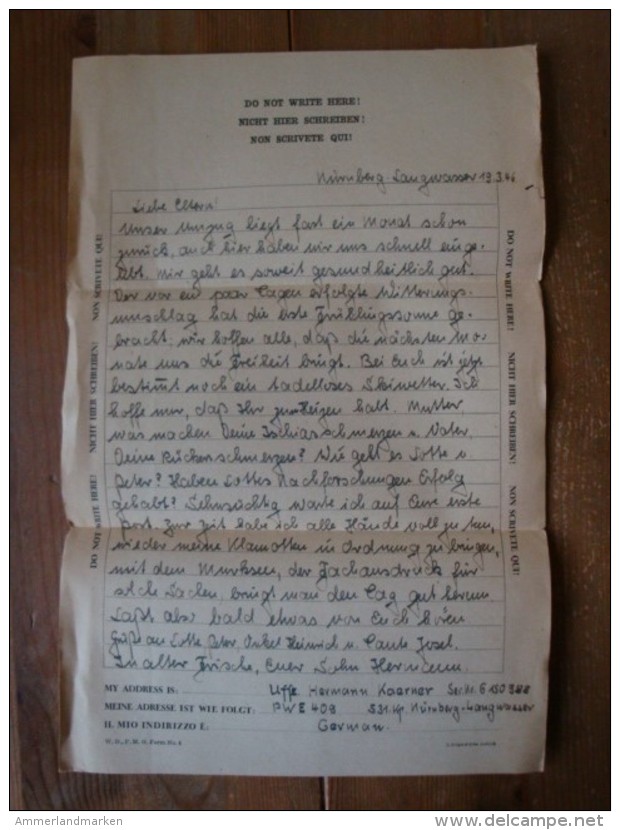 DO NOT WRITE HERE!
NICHT HIER SCHREIBEN!
NON SCRIVETE QUI!
Nürnberg-Langwasser 19.3.46
Liebe Eltern!
Unser Umzug liegt fast ein Monat schon
zurück, auch hier haben wir uns schnell einge-
lebt. Mir geht es soweit gesundheitlich gut.
Der vor ein paar Tagen erfolgte Witterungs-
umschlag hat die erste Frühlingssonne ge-
bracht; wir hoffen alle, daß die nächsten Mo-
nate uns die Freiheit bringt. Bei Euch ist jetzt
bestimmt noch ein tadelloses Skiwetter. Ich
hoffe nur, daß Ihr zu Heizen habt. Mutter,
was machen Deine Ischiasschmerzen u. Vater,
Deine Rückenschmerzen? Wie geht es Lotte u.
Peter? Haben Lottes Nachforschungen Erfolg
gehabt? Sehnsüchtig warte ich auf Eure erste
Post. Zur Zeit habe ich alle Hände voll zu tun,
wieder meine Klamotten in Ordnung zu bringen,
mit dem Murksen, der Fachausdruck für
solche Sachen, bringt man den Tag gut herum.
Laßt also bald etwas von Euch hören
Grüße an Lotte, Peter, Onkel Heinrich u. Tante Josef.
In alter Frische, Euer Sohn Hermann.
NON SCRIVETE QUI!
NICHT HIER SCHREIBEN!
DO NOT WRITE HERE!
DO NOT WRITE HERE!
NICHT HIER SCHREIBEN!
NON SCRIVETE QUI!
MY ADDRESS IS: Uffz. Hermann Kaerner Ser.Nr.
MEINE ADRESSE IST WIE FOLGT: PWE 409 Nürnberg-Langwasser
IL MIO INDIRIZZO È: German.
Ammerlandmarken
delcampe.net